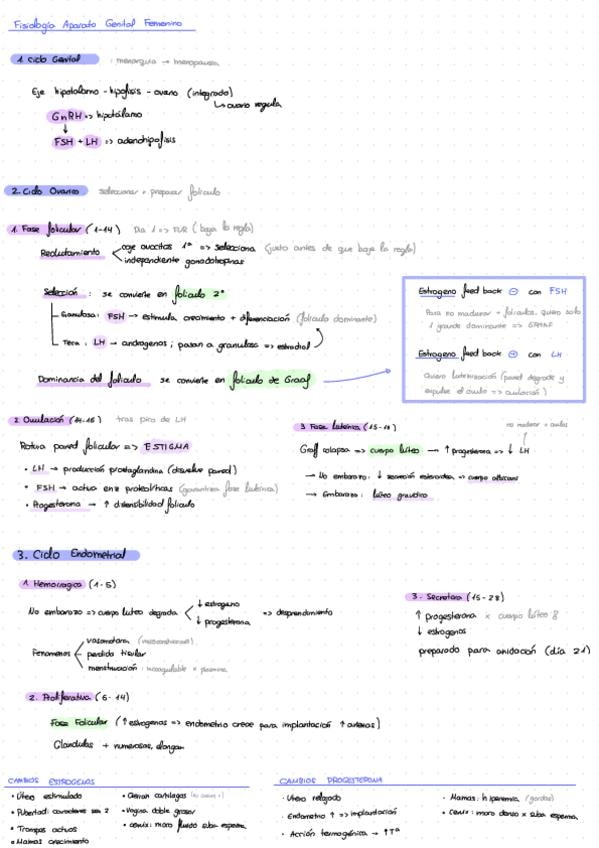 Fisiología Aparato Genital Femenino
1. Ciclo Genital : menarquia → menopausia
Eje hipotálamo - hipófisis - ovario (integrado)
↳ ovario regula
GnRH => hipotálamo
↓
FSH + LH => adenohipófisis
2. Ciclo Ovárico seleccionar + preparar folículo
1. Fase folicular (1-14) Día 1 => FUR (baja la regla)
Reclutamiento coge ovocitos 1º => selecciona (justo antes de que baje la regla)
independiente gonadotropinas
Selección : se convierte en folículo 2º
Granulosa: FSH → estimula crecimiento + diferenciación (folículo dominante)
Teca : LH → andrógenos ; pasan a granulosa => estradiol
Dominancia del folículo se convierte en folículo de Graaf
Estrógeno feed back ⊖ con FSH
Para no madurar + folículos, quiero solo
1 grande dominante => GRAAF
Estrógeno feed back con LH
Quiero luteinización (pared degrade y
expulse el óvulo => ovulación)
2 Ovulación (14-15) tras pico de LH
Rotura pared folicular => ESTIGMA
• LH → producción prostaglandina (disuelve pared)
• FSH → activa enz proteolíticas (garantiza fase luteínica)
• Progesterona → ↑ distensibilidad folículo
3 Fase luteínica (15-28)
no madurar + óvulos
Graff colapsa => cuerpo lúteo → ↑ progesterona => ↓ LH
→ No embarazo: ↓ secreción esteroidea => cuerpo albicans
→ Embarazo: lúteo gravídico
3. Ciclo Endometrial
1 Hemorrágica (1-5)
No embarazo => cuerpo lúteo degrada ↓ estrógeno => desprendimiento
↓ progesterona
Fenómenos vasomotora (vasoconstricción)
perdida tisular
menstruación : incoagulable x plasmina
2. Proliferativa (6-14)
Fase Folicular (↑ estrógenos => endometrio crece para implantación ↑ arterias)
Glándulas + numerosas, alongan
3. Secretora (15-28)
↑ progesterona x cuerpo lúteo
↓ estrógenos
preparado para anidación (día 21)
CAMBIOS ESTRÓGENOS
• Útero estimulado
• Pubertad: caracteres sex 2
• Trompas activas
• Mamas crecimiento
• Cierran cartílagos
• Vagina doble grosor
• cervix: moco fluido suba esperma
CAMBIOS PROGESTERONA
• Útero relajado
• Endometrio ↑ => implantación
• Acción termogénica → ↑ Tª
• Mamas: hiperemia (gordas)
• Cervix: moco denso x suba esperma